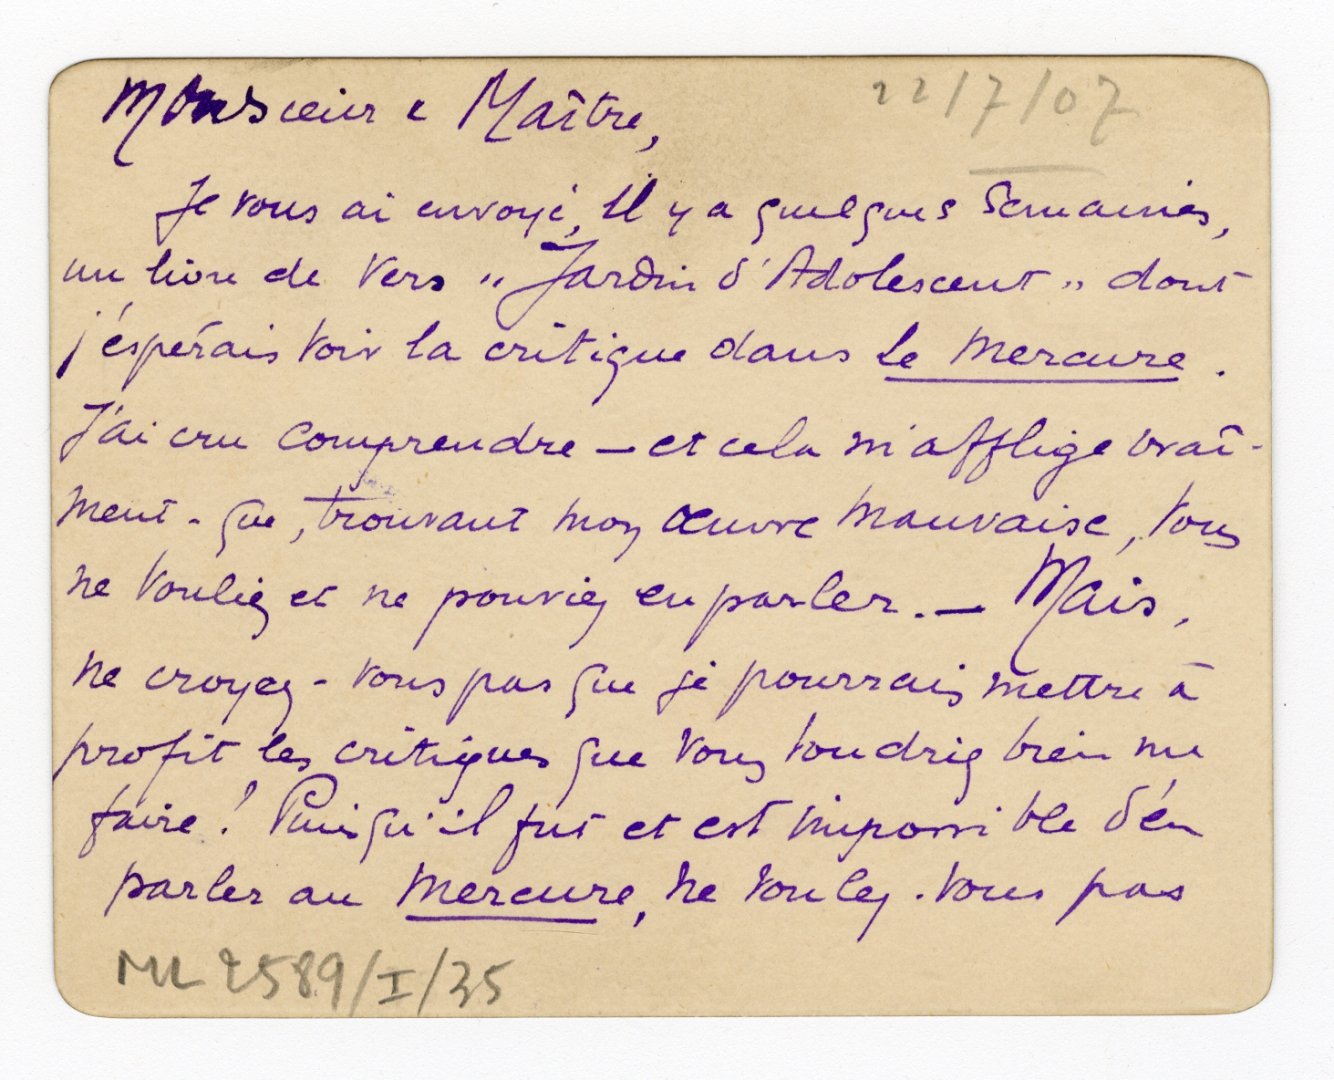 Monsieur & Maître,
22/7/07
Je vous ai envoyé, Il y a quelques Semaines,
un livre de Vers „ Jardin d'Adolescent „ dont
j'éspérais voir la critique dans le Mercure .
J'ai cru comprendre — et cela m'afflige vraî-
ment - que, trouvant mon œuvre mauvaise, vous
ne vouliez et ne pouviez en parler. — Mais,
ne croyez-vous pas que je pourrais mettre à
profit les critiques que vous voudriez bien me
faire ! Puisqu'il fut et est impossible d'en
parler au Mercure, ne voulez-vous pas
ML 2589/I/35